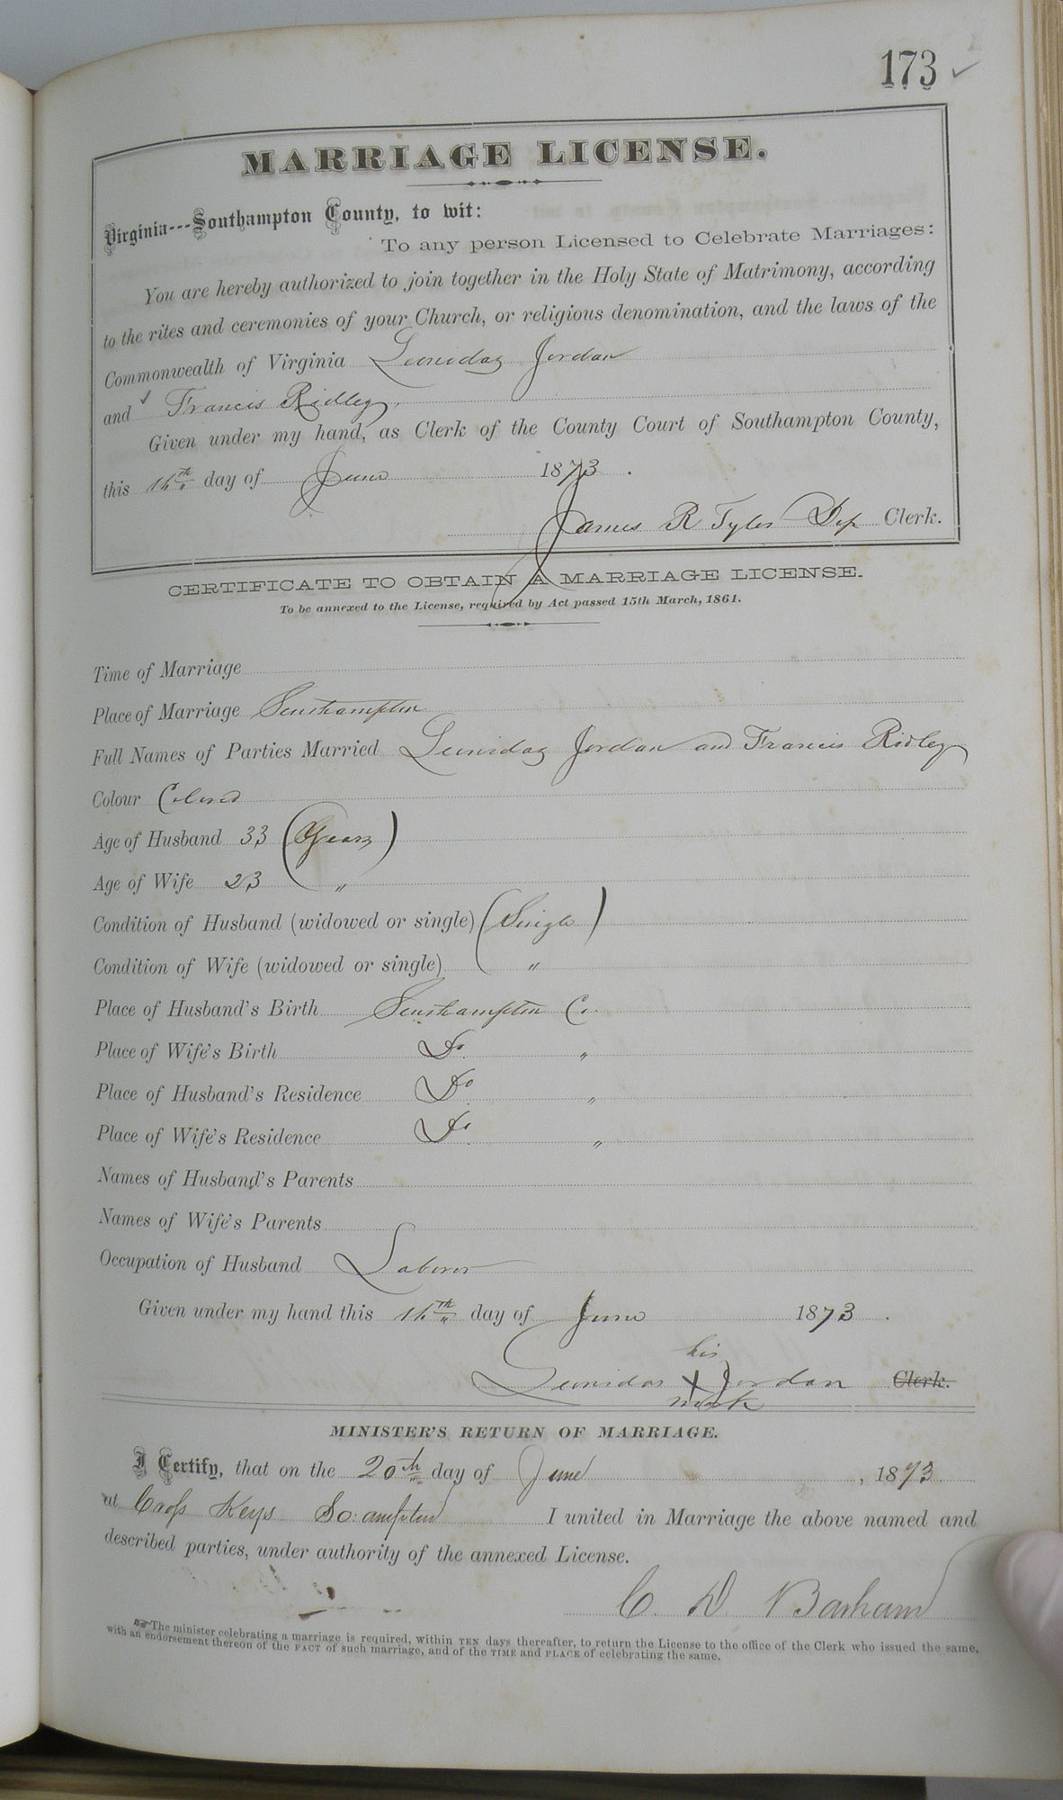 173 ✓
MARRIAGE LICENSE.
Virginia---Southampton County, to wit:
To any person Licensed to Celebrate Marriages:
You are hereby authorized to join together in the Holy State of Matrimony, according
to the rites and ceremonies of your Church, or religious denomination, and the laws of the
Commonwealth of Virginia Leonidas Jordan
and Francis Ridley.
Given under my hand, as Clerk of the County Court of Southampton County,
this 14th day of June 1873.
James R Tyler Dep Clerk.
CERTIFICATE TO OBTAIN A MARRIAGE LICENSE.
To be annexed to the License, required by Act passed 15th March, 1861.
Time of Marriage
Place of Marriage Southampton
Full Names of Parties Married Leonidas Jordan and Francis Ridley
Colour Colored
Age of Husband 33 (Years)
Age of Wife 23 "
Condition of Husband (widowed or single) (Single)
Condition of Wife (widowed or single) "
Place of Husband's Birth Southampton Co.
Place of Wife's Birth Do "
Place of Husband's Residence Do "
Place of Wife's Residence Do "
Names of Husband's Parents
Names of Wife's Parents
Occupation of Husband Laborer
Given under my hand this 14th day of June 1873.
his
Leonidas X Jordan Clerk.
mark
MINISTER'S RETURN OF MARRIAGE.
I Certify, that on the 20th day of June, 1873
at Cross Keys So.ampton I united in Marriage the above named and
described parties, under authority of the annexed License.
C. D. Barham
The minister celebrating a marriage is required, within TEN days thereafter, to return the License to the office of the Clerk who issued the same,
with an endorsement thereon of the FACT of such marriage, and of the TIME and PLACE of celebrating the same.